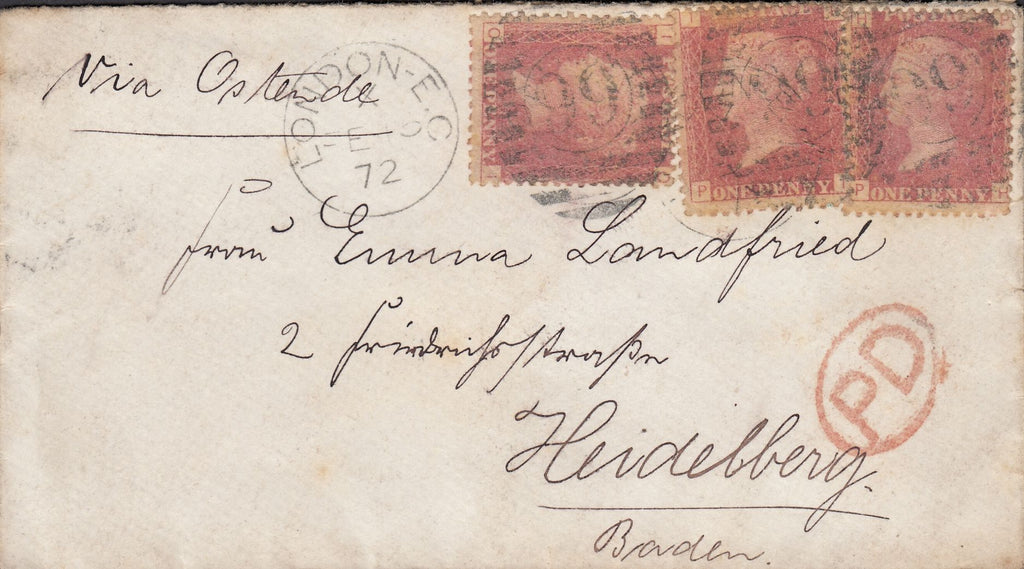 Via Ostende
LONDON-E.C
FE
72
99
99
99
P ONE PENNY I
P ONE PENNY H
Frau Emma Landfried
2 Friedrichsstraße
PD
Heidelberg.
Baden.